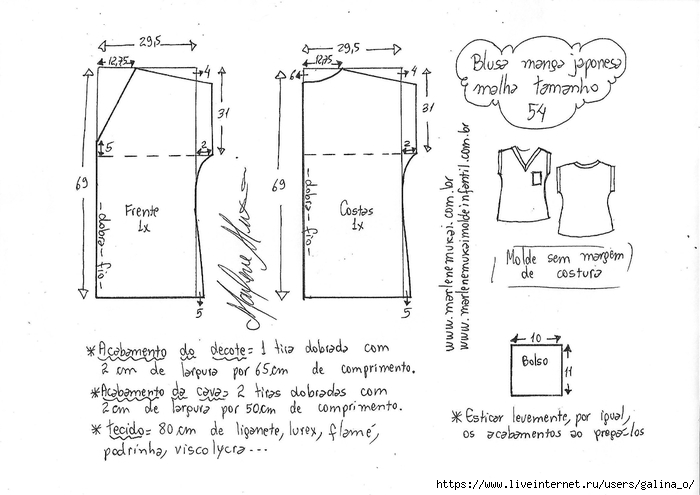 29,5
12,75
4
31
5
2
69
Frente
1x
-dobra-fio-
5
29,5
12,75
6
4
31
2
69
Costas
1x
-dobra-fio-
5
Blusa manga japonesa
malha tamanho
54
www.marlenemukai.com.br
www.marlenemukaimoldeinfantil.com.br
Marlene Mukai
Molde sem margem
de costura
10
Bolso
11
* Acabamento do decote = 1 tira dobrada com
2 cm de largura por 65 cm de comprimento.
* Acabamento da cava = 2 tiras dobradas com
2 cm de largura por 50 cm de comprimento.
* tecido = 80 cm de liganete, lurex, flamê,
podrinha, viscolycra ...
* Esticar levemente, por igual,
os acabamentos ao pregá-los
https://www.liveinternet.ru/users/galina_o/